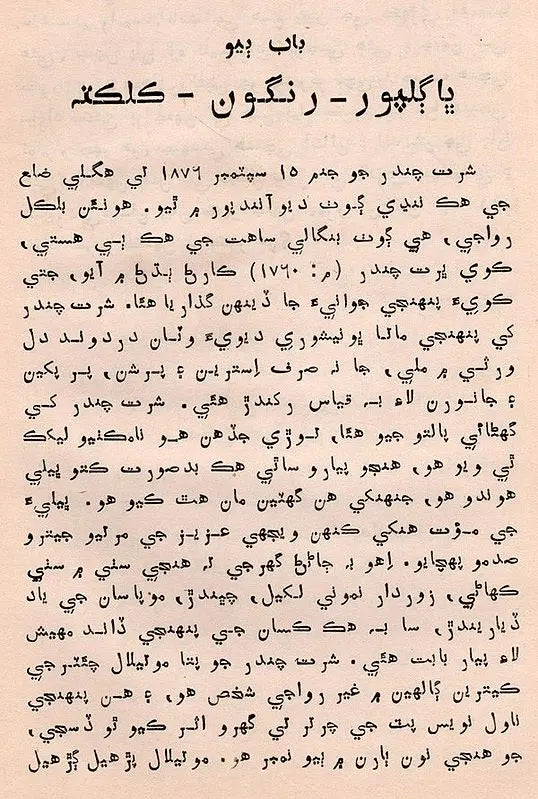 باب ٻيو
ڀاڳلپور - رنگون - ڪلڪتہ
شرت چندر جو جنم ١٥ سپٽمبر ١٨٧٦ تي هگلي ضلع
جي هڪ ننڍي ڳوٺ ديوآنندپور ۾ ٿيو. هونئن بلڪل
رواجي، هي ڳوٺ بنگالي ساهت جي هڪ ٻي هستي،
ڪوي ڀرت چندر (م: ١٧٦٠) ڪارڻ ٻڌڻ ۾ آيو، جتي
ڪويءَ پنهنجي جوانيءَ جا ڏينهن گذاريا هئا. شرت چندر
کي پنهنجي ماتا ڀونيشوري ديويءَ وٽان دردوند دل
ورثي ۾ ملي، جا نہ صرف اِسترين ۽ پرشن، پر پکين
۽ جانورن لاءِ بہ قياس رکندڙ هئي. شرت چندر کي
گهڻائي پالتو جيو هئا، توڙي جڏهن هو نامڪٺيو ليکڪ
ٿي ويو هو، هنجو پيارو ساٿي هڪ بدصورت ڪتو ڀيلي
هوندو هو، جنهنکي هن گهٽين مان هٿ ڪيو هو. ڀيليءَ
جي موت هنکي ڪنهن ويجهي عزيز جي مرتيو جيترو
صدمو پهچايو. اِهو بہ ڄاڻڻ گهرجي تہ هنجي سني ۾ سٺي
ڪهاڻي، زوردار نموني لکيل، چڀندڙ، موپاسان جي ياد
ڏياريندڙ، سا بہ هڪ ڪسان جي پنهنجي ڏاند مهيش
لاءِ پيار بابت هئي. شرت چندر جو پتا موتيلال چٽرجي
ڪيترين ڳالهين ۾ غير رواجي شخص هو، ۽ هن پنهنجي
ناول نويس پٽ جي چرتر تي گهرو اثر ڪيو ٿو ڏسجي،
جو هنجي نون ٻارن ۾ ٻيو نمبر هو. موتيلال پڙهيل ڳڙهيل